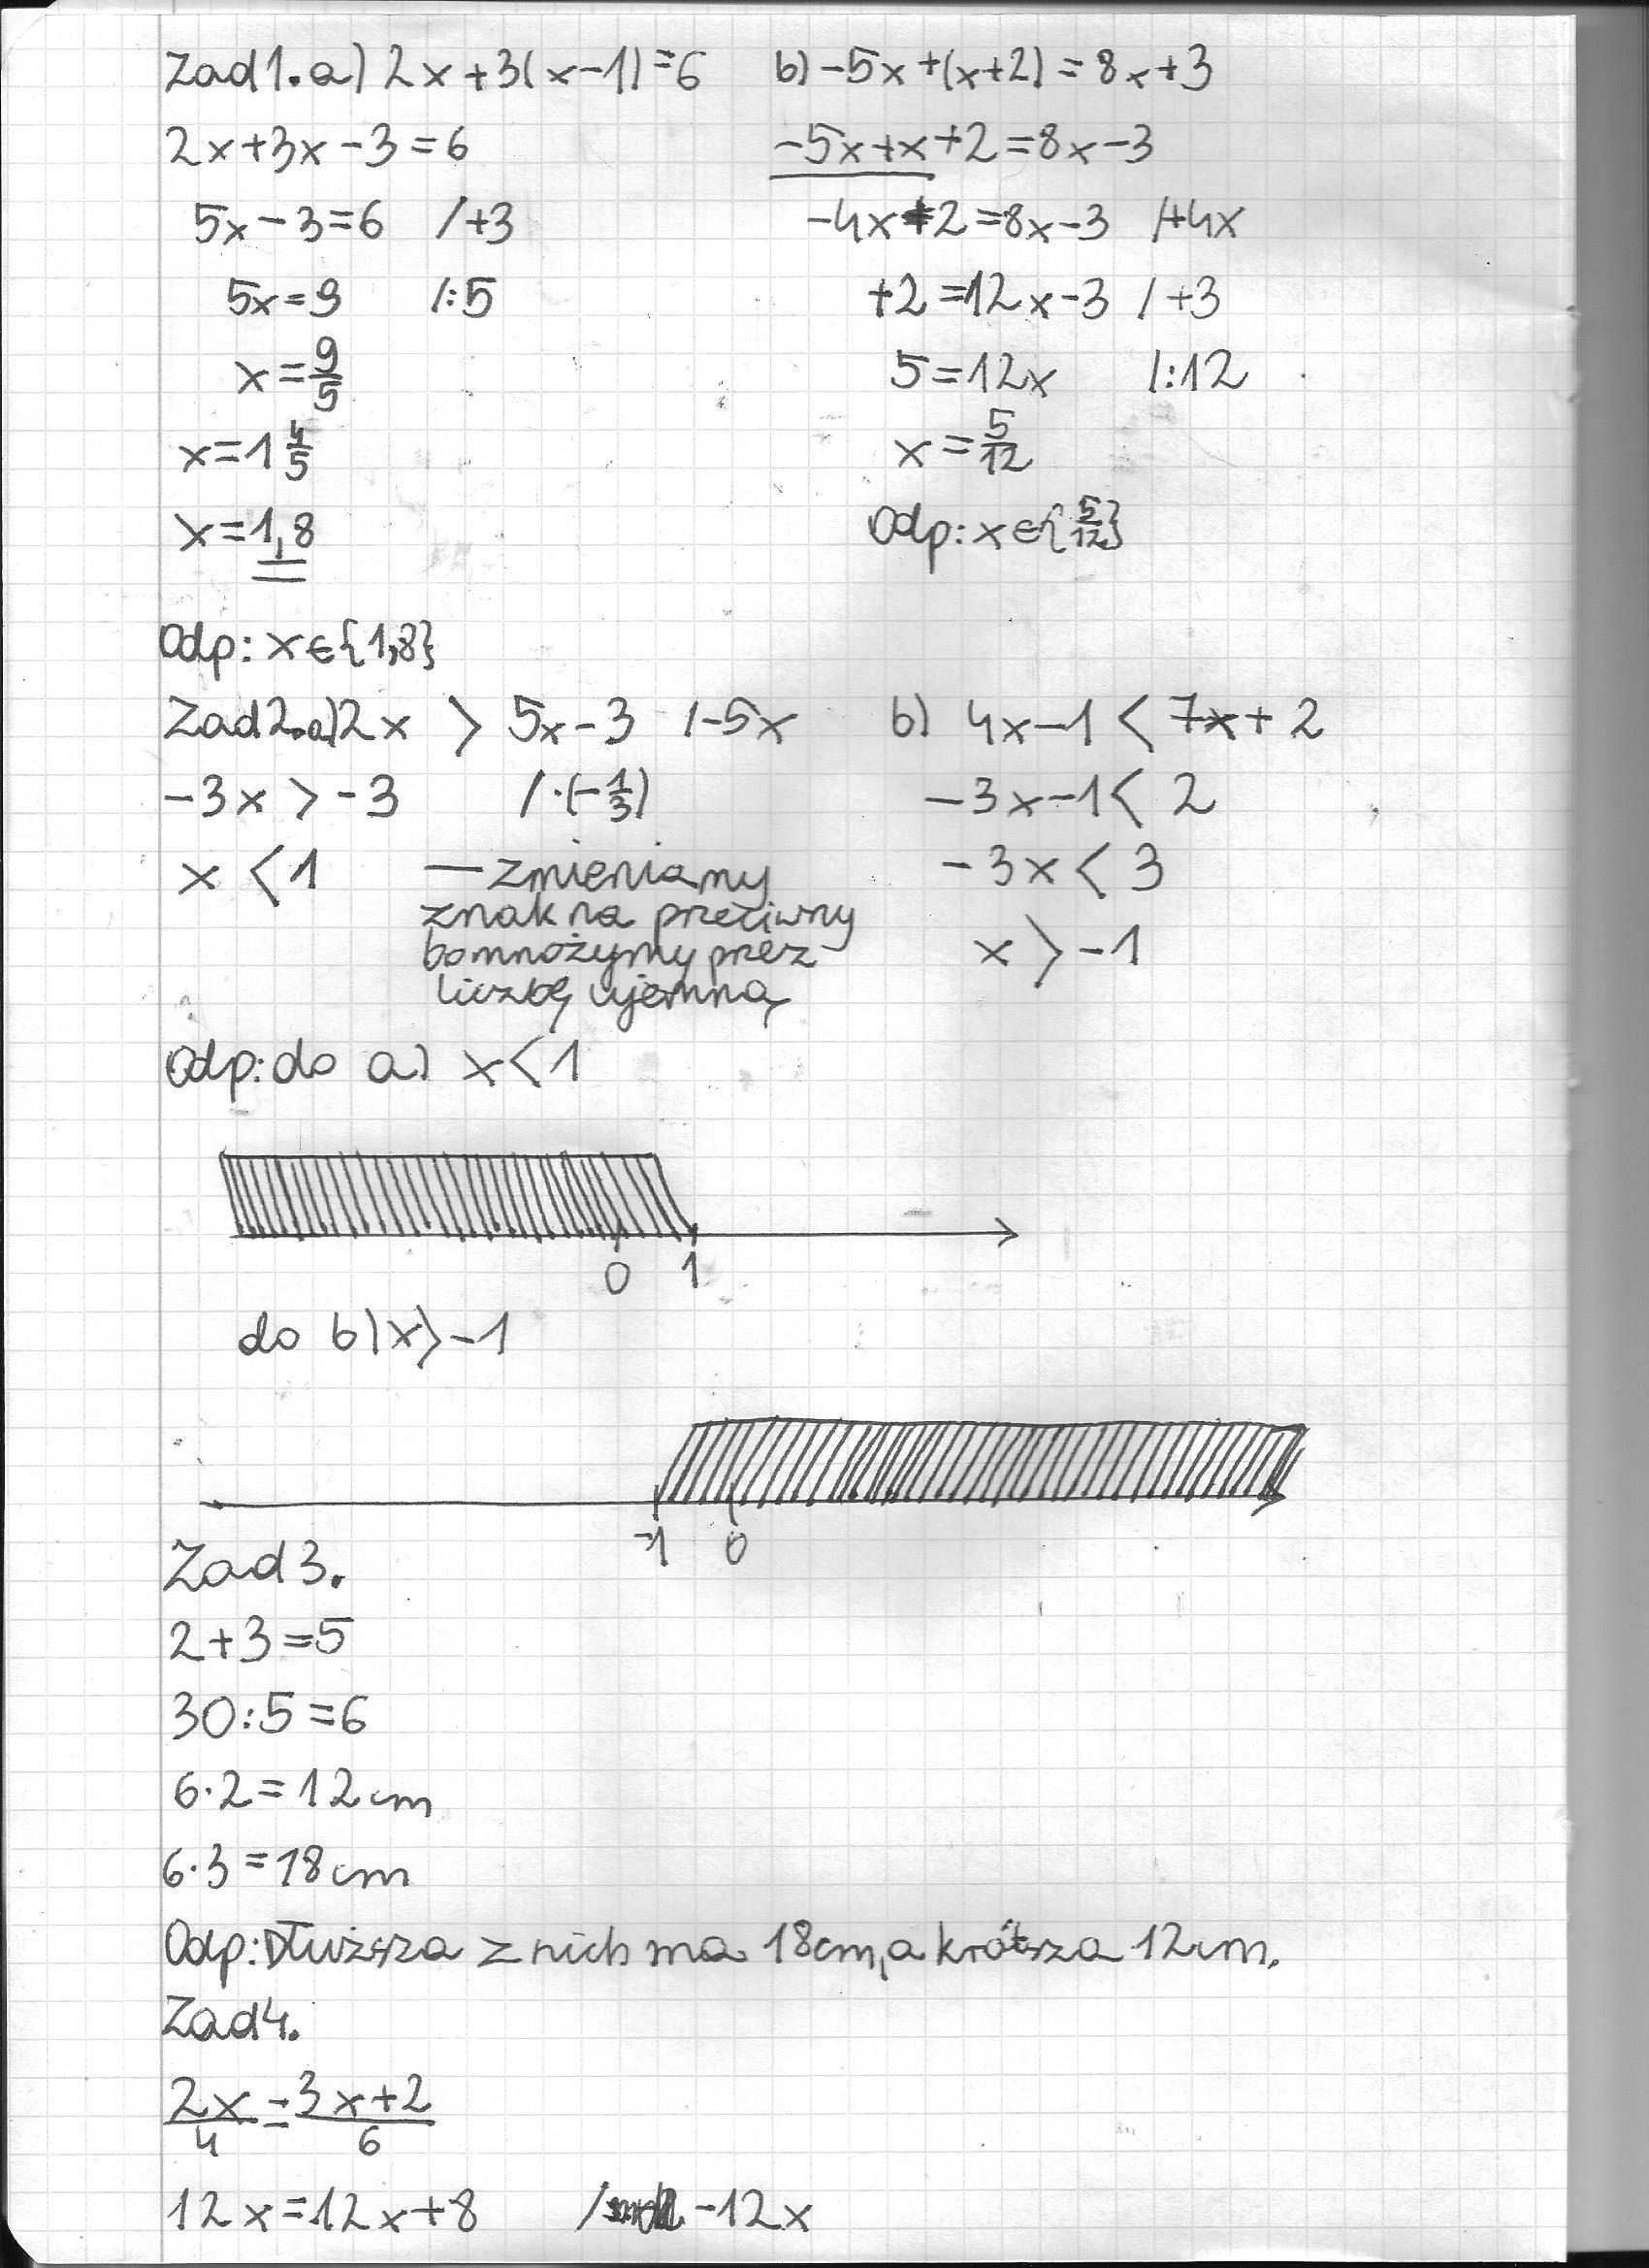 Zad1. a) 2x+3(x-1)=6 b) -5x+(x+2)=8x+3
2x+3x-3=6 -5x+x+2=8x-3
5x-3=6 /+3 -4x+2=8x-3 /+4x
5x=9 /:5 +2=12x-3 /+3
x=9/5 5=12x /:12
x=1 4/5 x=5/12
x=1,8 Odp: x∈{5/12}
Odp: x∈{1,8}
Zad2. a) 2x > 5x-3 /-5x b) 4x-1 < 7x+2
-3x > -3 /·(-1/3) -3x-1 < 2
x < 1 — zmieniamy -3x < 3
znak na przeciwny
bo mnożymy przez x > -1
liczbę ujemną
Odp: do a) x<1
0 1
do b) x>-1
-1 0
Zad3.
2+3=5
30:5=6
6·2=12cm
6·3=18cm
Odp: Dłuższa z nich ma 18cm, a krótsza 12cm.
Zad4.
2x/4 = 3x+2/6
12x=12x+8 / -12x